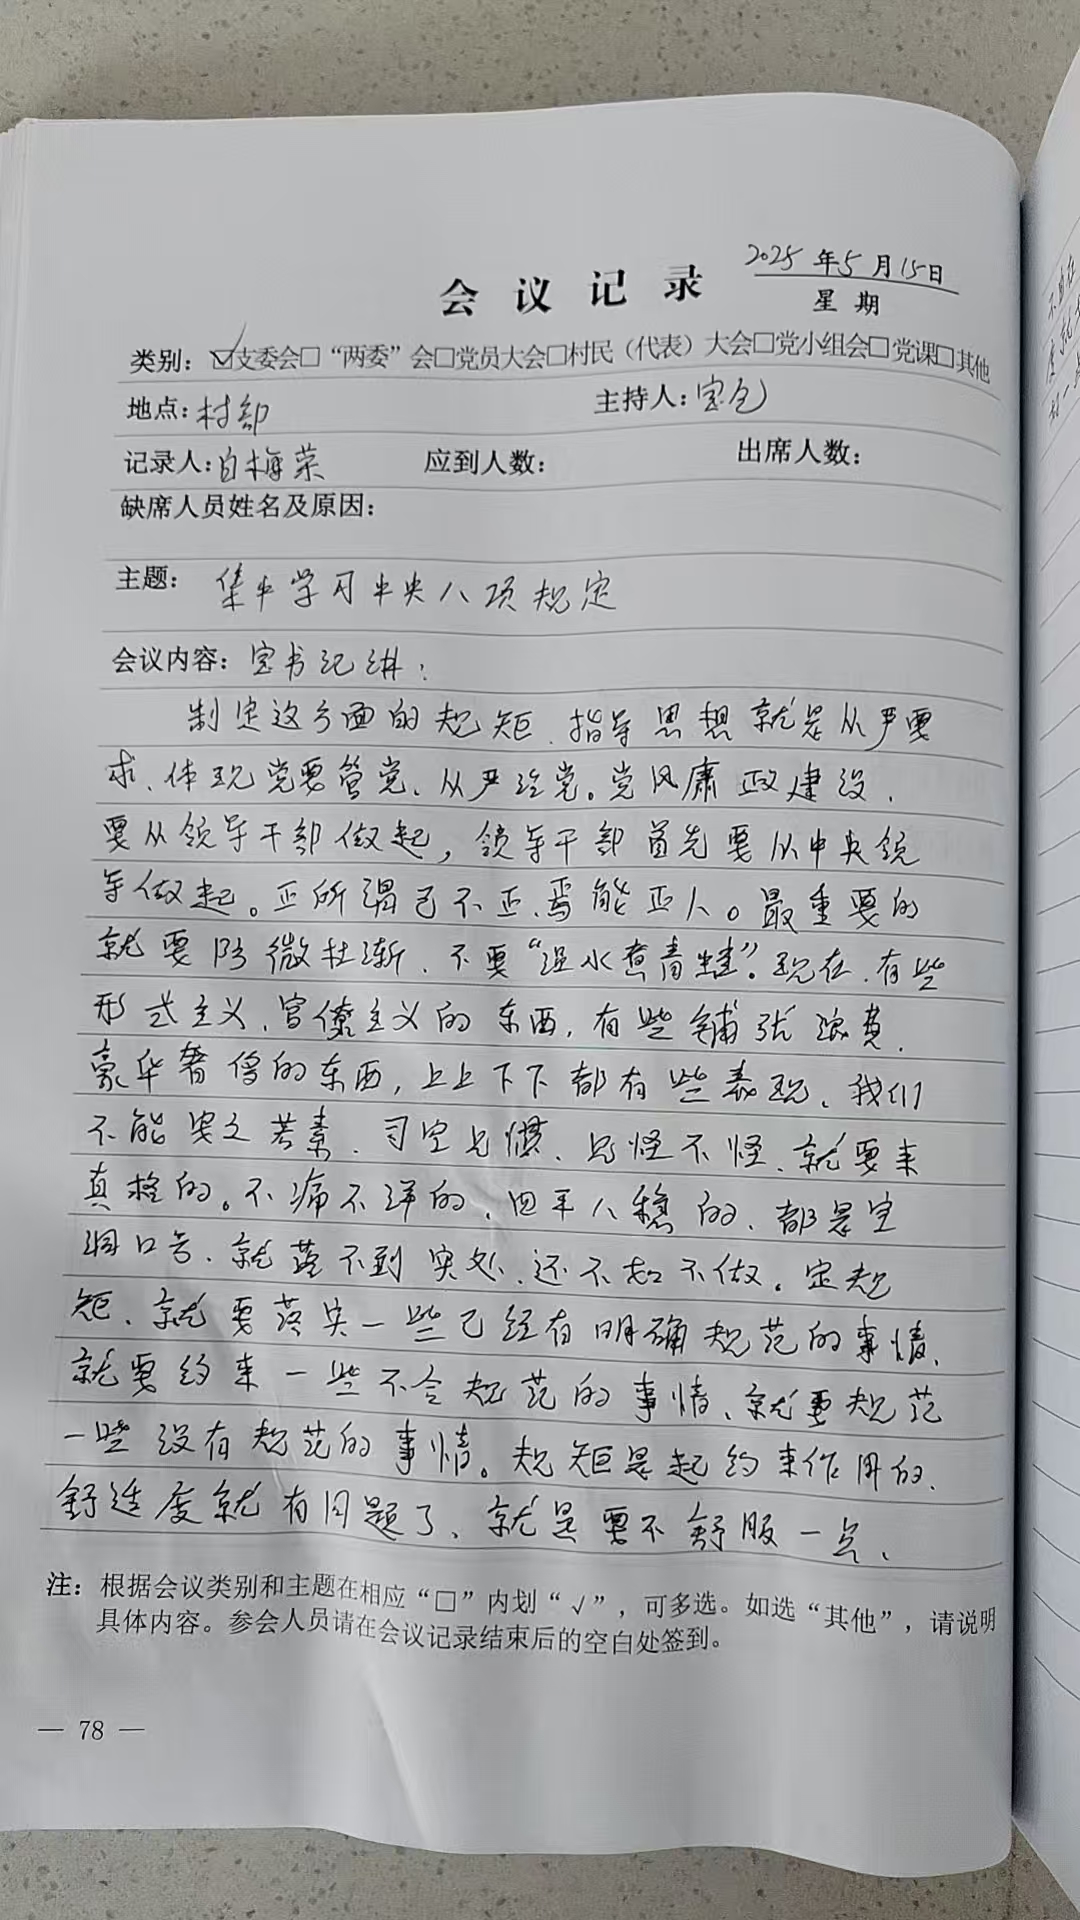 会议记录
2025年5月15日
星期
类别：☑支委会□“两委”会□党员大会□村民（代表）大会□党小组会□党课□其他
地点：村部 主持人：宝仓
记录人：白梅荣 应到人数： 出席人数：
缺席人员姓名及原因：
主题：集中学习中央八项规定
会议内容：宝书记讲：
制定这方面的规矩、指导思想就是从严要
求、体现党要管党、从严治党。党风廉政建设、
要从领导干部做起，领导干部首先要从中央领
导做起。正所谓己不正、焉能正人。最重要的
就要防微杜渐、不要“温水煮青蛙”。现在、有些
形式主义、官僚主义的东西，有些铺张浪费、
豪华奢侈的东西，上上下下都有些表现、我们
不能安之若素、司空见惯、见怪不怪、就要来
真格的。不痛不痒的、四平八稳的、都是空
洞口号、就落不到实处、还不如不做。定规
矩、就要落实一些已经有明确规范的事情、
就要约束一些不合规范的事情、就要规范
一些没有规范的事情。规矩是起约束作用的、
舒适度就有问题了、就是要不舒服一点、
注：根据会议类别和主题在相应“□”内划“√”，可多选。如选“其他”，请说明
具体内容。参会人员请在会议记录结束后的空白处签到。
— 78 —